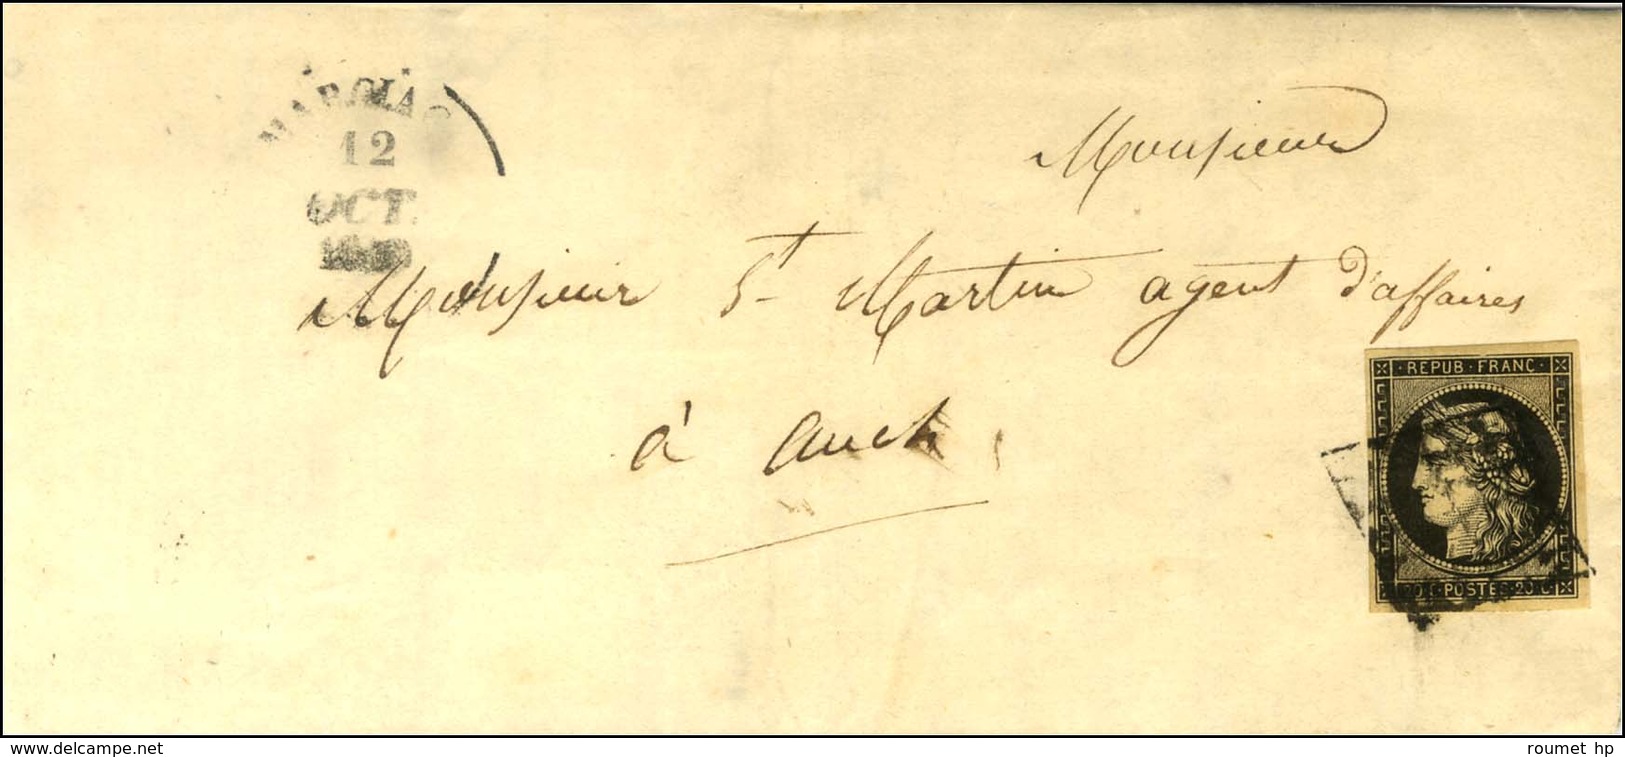 MARCIAC
12
OCT.
Monsieur
Monsieur St Martin agent d'affaires
à Auch
REPUB · FRANC
20 C · POSTES · 20 C
www.delcampe.net
roumet hp